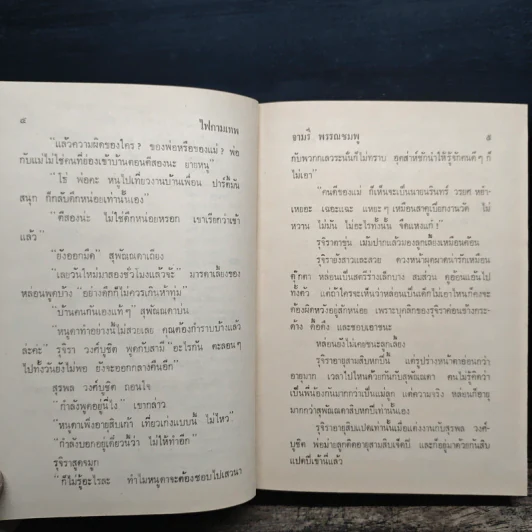 ๔ ไฟกามเทพ
"แล้วความผิดของใคร? ของพ่อหรือของแม่? พ่อ
กับแม่ไม่ใช่คนที่ย่องเข้าบ้านตอนตีสองนะ ยายหนู"
"โธ่ พ่อคะ หนูไปเที่ยวงานบ้านเพื่อน ปาร์ตี้มัน
สนุก ก็กลับดึกหน่อยเท่านั้นเอง"
"ตีสองน่ะ ไม่ใช่ดึกหน่อยหรอก เขาเรียกว่าเช้า
แล้ว"
"ยังออกมืด" สุพัณณดาเถียง
"เลยวันใหม่มาสองชั่วโมงแล้วจ้ะ" มารดาเลี้ยงของ
หล่อนพูดบ้าง "อย่างดึกก็ไม่ควรเกินห้าทุ่ม"
"บ้านคนกันเองแท้ๆ" สุพัณณดาบ่น
"หนูดาทำอย่างนี้ไม่สวยเลย คุณต้องกำราบบ้างแล้ว
ล่ะค่ะ" รุจิรา วงศ์บูชิต พูดกับสามี "อะไรกัน ตะลอนๆ
ไปทั้งวันยังไม่พอ ยันจะออกกลางคืนอีก"
สุรพล วงศ์บูชิต ถอนใจ
"กำลังพูดอยู่นี่ไง" เขากล่าว
"หนูดาเพิ่งอายุสิบเก้า เที่ยวเก่งแบบนี้ ไม่ไหว"
"กำลังบอกอยู่เดี๋ยวนี้ว่า ไม่ให้ทำอีก"
รุจิราสูดจมูก
"ก็ไม่รู้อะไรล่ะ ทำไมหนูดาจะต้องชอบไปเสวนา
จามรี พรรณชมพู ๕
กับพวกกเลวระนั้นก็ไม่ทราบ อุตส่าห์ชักนำให้รู้จักคนดีๆ ก็
ไม่เอา"
"คนดีของแม่ ก็เห็นจะเป็นนายนรินทร์ วรยศ
เหยอะ เฉอะแฉะ แหยะๆ เหมือนสาคูเปียกงานวัด ไม่
หวาน ไม่มัน ไม่อะไรทั้งนั้น จืดแหงแก๋!"
รุจิราตาขุ่น เม้มปากแล้วมองลูกเลี้ยงเหมือนค้อน
รุจิรายังสาวและสวย ดวงหน้าผุดผาดน่ารักเหมือน
ตุ๊กตา หล่อนเป็นสตรีร่างเล็กบาง สมส่วน ดูอ้อนแอ้นไป
ทั้งตัว แต่ถ้าใครจะเห็นว่าหล่อนเป็นเด็กไม่เอาไหนก็คงจะ
ต้องผิดหวังอยู่สักหน่อย เพราะบุคลิกของรุจิราค่อนข้างกระ-
ด้าง ดื้อดึง และชอบเอาชนะ
หล่อนยังไม่เคยชนะลูกเลี้ยง
รุจิราอายุสามสิบหกปี แต่รูปร่างหน้าตาอ่อนกว่า
อายุมาก เวลาไปไหนด้วยกันกับสุพัณณดา คนไม่รู้คิดว่า
เป็นพี่น้องกันมากกว่าเป็นแม่ลูก แต่ความจริง หล่อนก็อายุ
มากกว่าสุพัณณดาสิบหกปีเท่านั้นเอง
รุจิราอายุสิบแปดเท่านั้นเมื่อแต่งงานกับสุรพล วงศ์-
บูชิต พ่อม่ายลูกติดอายุสามสิบเจ็ดปี และก็อยู่มาด้วยกันสิบ
แปดปีเข้านี่แล้ว